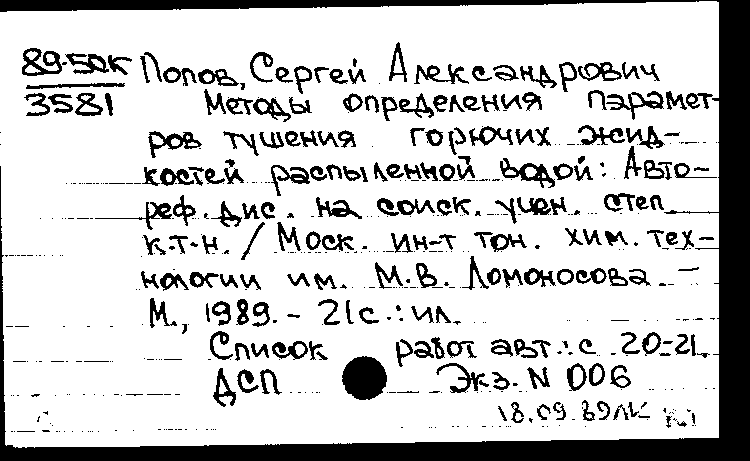 89-50К
3581
Попов, Сергей Александрович
Методы определения парамет-
ров тушения горючих жид-
костей распыленной водой: Авто-
реф. дис. на соиск. учен. степ.
к.т.н. / Моск. ин-т тон. хим. тех-
нологии им. М.В. Ломоносова. –
М., 1989. – 21с.: ил.
Список работ авт.: с. 20-21.
ДСП Экз. N 006
18.09.89